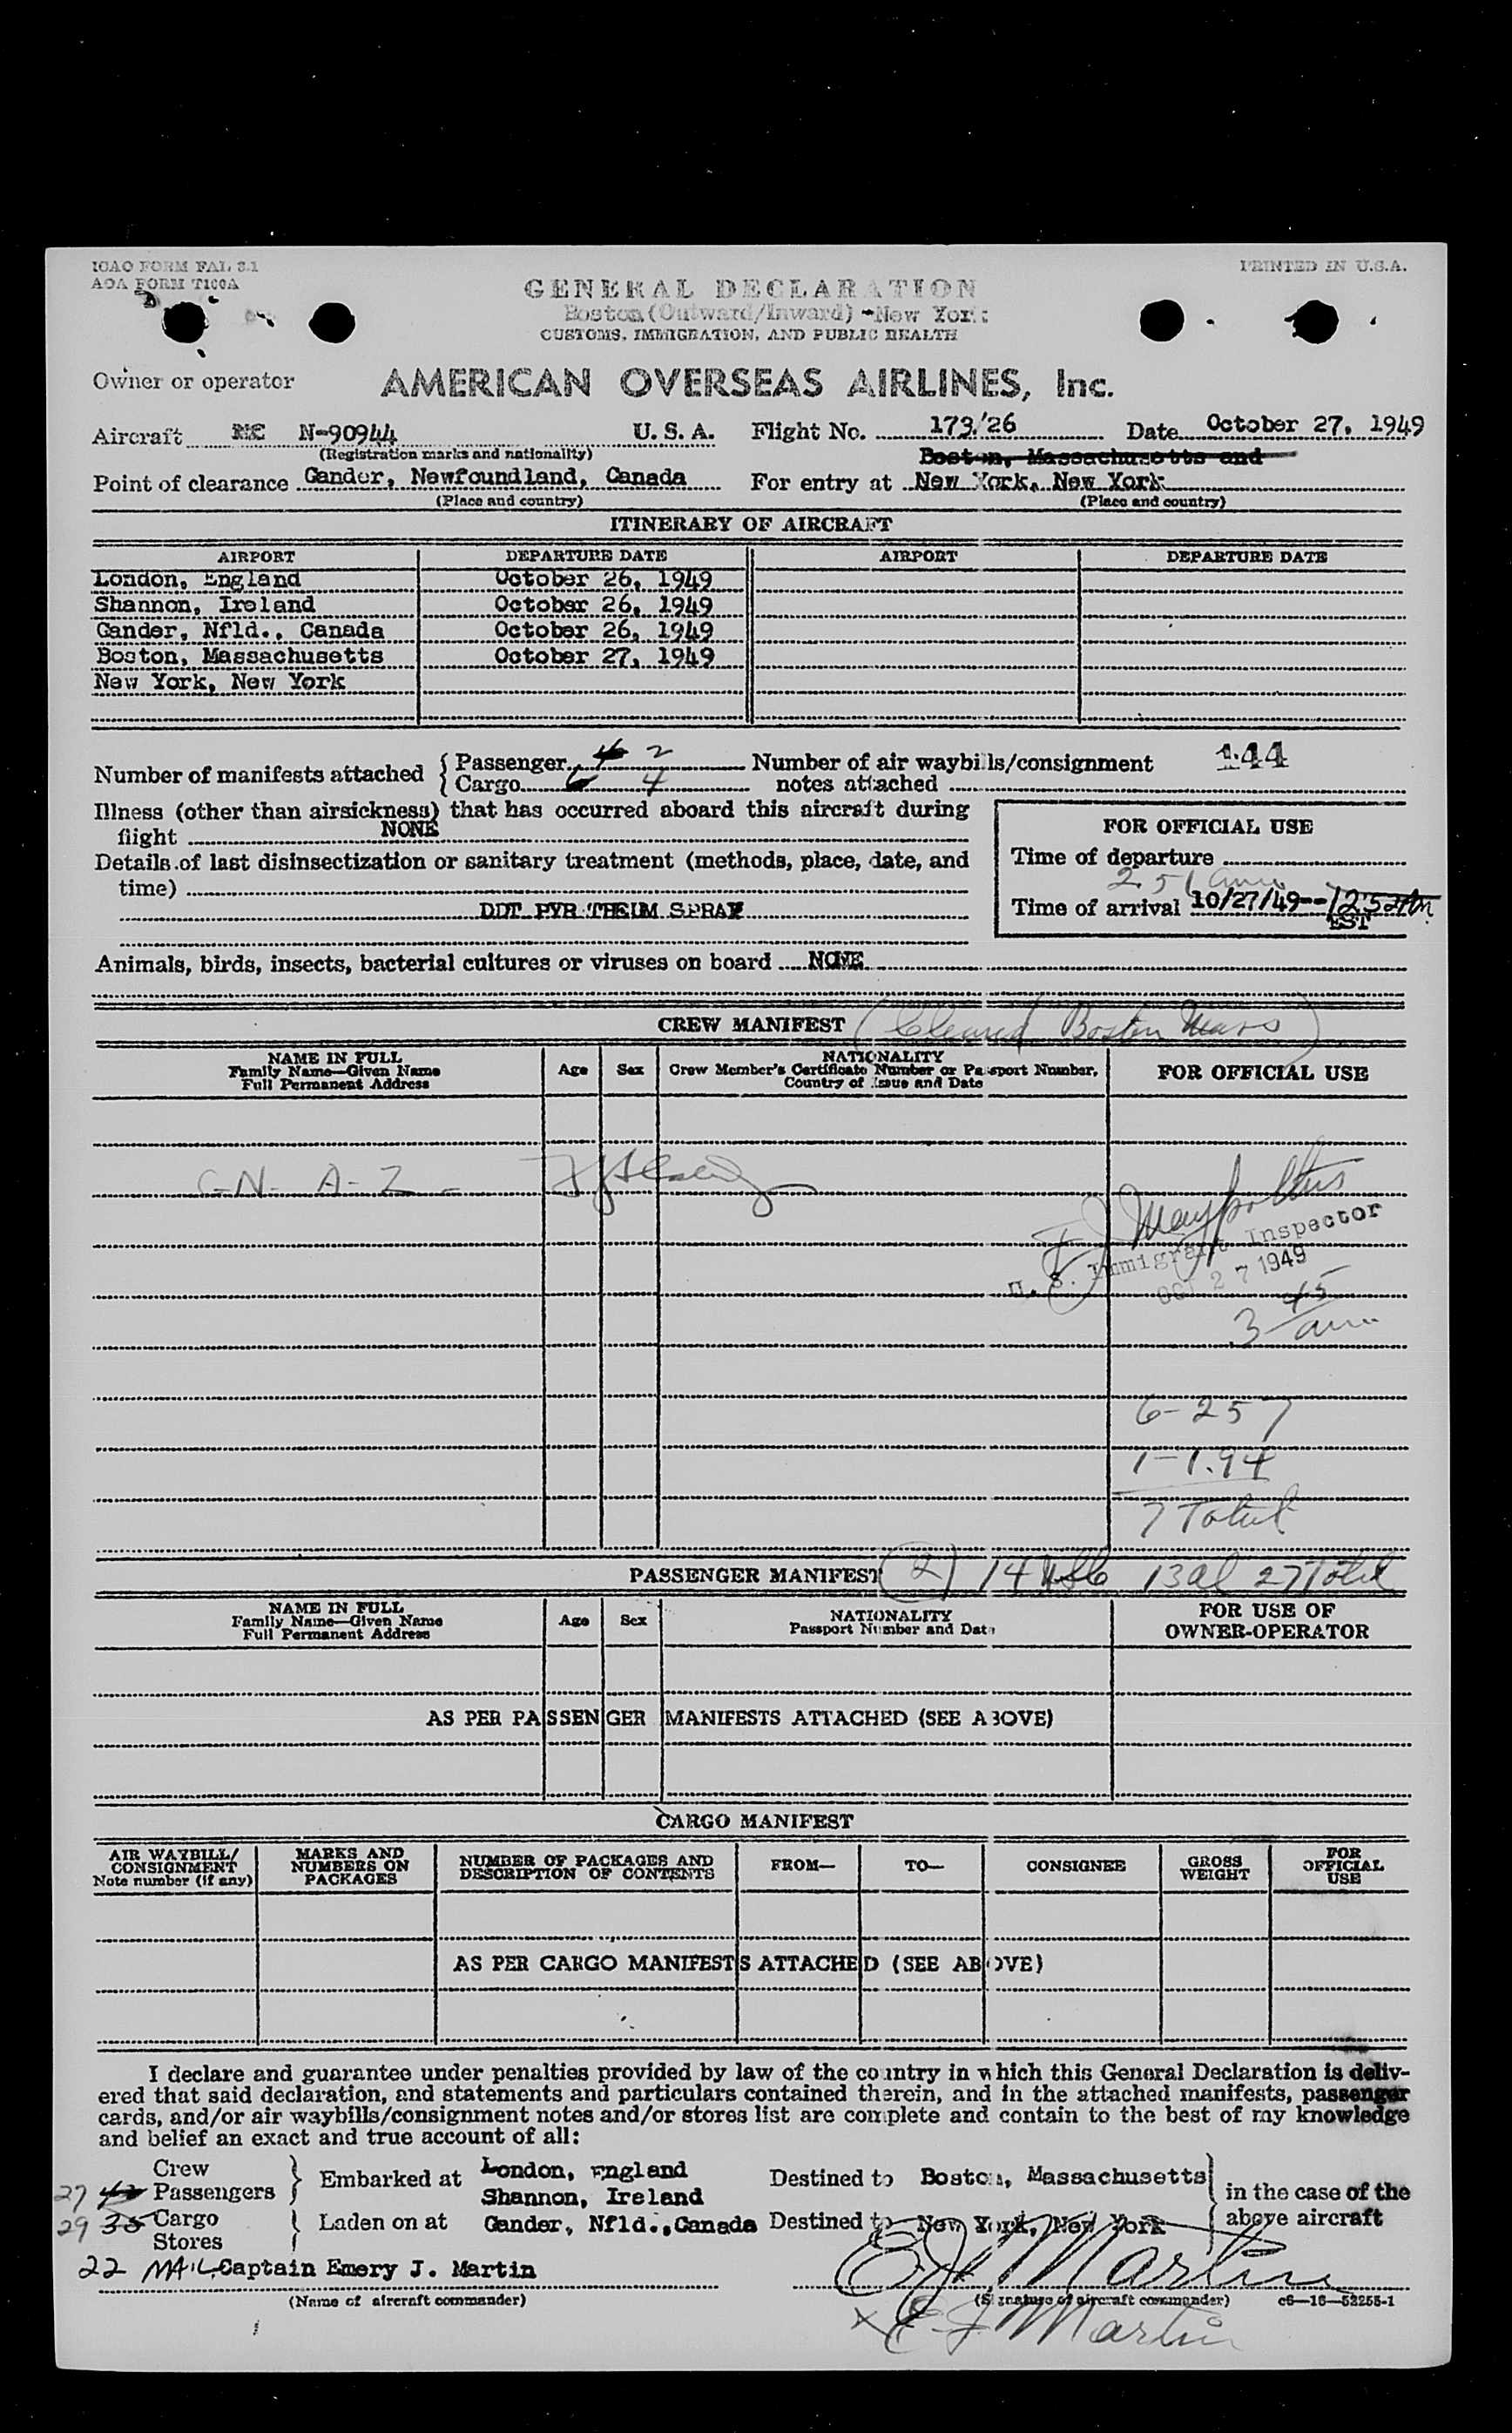 ICAO FORM FAL 3.1
AOA FORM T100A
PRINTED IN U.S.A.
GENERAL DECLARATION
Boston (Outward/Inward) - New York
CUSTOMS, IMMIGRATION, AND PUBLIC HEALTH
Owner or operator AMERICAN OVERSEAS AIRLINES, Inc.
Aircraft NC N-90944 U. S. A. Flight No. 173/26 Date October 27, 1949
(Registration marks and nationality)
Boston, Massachusetts and
Point of clearance Gander, Newfoundland, Canada For entry at New York, New York
(Place and country) (Place and country)
ITINERARY OF AIRCRAFT
AIRPORT DEPARTURE DATE AIRPORT DEPARTURE DATE
London, England October 26, 1949
Shannon, Ireland October 26, 1949
Gander, Nfld., Canada October 26, 1949
Boston, Massachusetts October 27, 1949
New York, New York
Number of manifests attached { Passenger 4 2 Number of air waybills/consignment 144
Cargo 6 4 notes attached
Illness (other than airsickness) that has occurred aboard this aircraft during
flight NONE
Details of last disinsectization or sanitary treatment (methods, place, date, and
time)
DDT PYR THEUM SPRAY
FOR OFFICIAL USE
Time of departure
2 51 am
Time of arrival 10/27/49--
EST
Animals, birds, insects, bacterial cultures or viruses on board NONE
CREW MANIFEST (Cleared Boston Mass)
NAME IN FULL
Family Name—Given Name
Full Permanent Address
Age Sex
NATIONALITY
Crew Member's Certificate Number or Passport Number,
Country of Issue and Date
FOR OFFICIAL USE
G-N- A-2 -
U. S. Immigrant Inspector
OCT 27 1949
3 45 am
6-257
1-1.94
7 Total
PASSENGER MANIFEST (2) 14 USC 13 al 27 Total
NAME IN FULL
Family Name—Given Name
Full Permanent Address
Age Sex
NATIONALITY
Passport Number and Date
FOR USE OF
OWNER-OPERATOR
AS PER PASSENGER MANIFESTS ATTACHED (SEE ABOVE)
CARGO MANIFEST
AIR WAYBILL/
CONSIGNMENT
Note number (if any)
MARKS AND
NUMBERS ON
PACKAGES
NUMBER OF PACKAGES AND
DESCRIPTION OF CONTENTS
FROM— TO— CONSIGNEE
GROSS
WEIGHT
FOR
OFFICIAL
USE
AS PER CARGO MANIFESTS ATTACHED (SEE ABOVE)
I declare and guarantee under penalties provided by law of the country in which this General Declaration is deliv-
ered that said declaration, and statements and particulars contained therein, and in the attached manifests, passenger
cards, and/or air waybills/consignment notes and/or stores list are complete and contain to the best of my knowledge
and belief an exact and true account of all:
Crew
27 42 Passengers } Embarked at London, England Destined to Boston, Massachusetts
Shannon, Ireland
in the case of the
29 35 Cargo
Stores } Laden on at Gander, Nfld., Canada Destined to New York, New York
above aircraft
22 MAIL Captain Emery J. Martin E J Martin
(Name of aircraft commander) (Signature of aircraft commander) c6—16—52255-1
x E. J. Martin